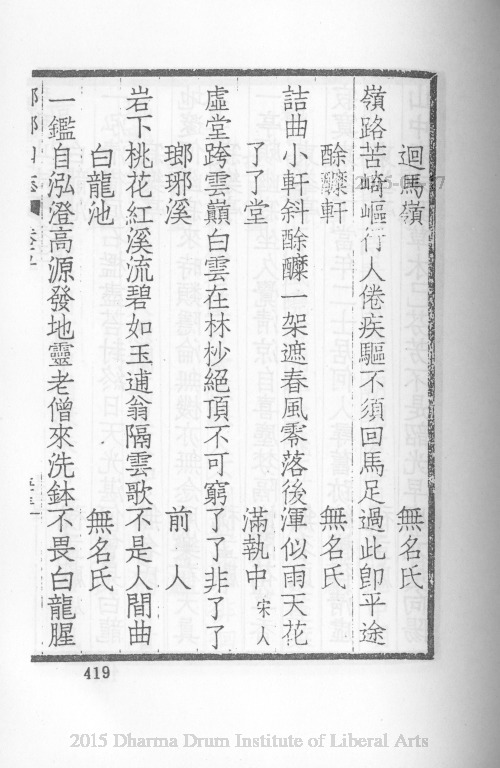 迴馬嶺
無名氏
嶺路苦崎嶇行人倦疾驅不須回馬足過此卽平途
酴醾軒
無名氏
詰曲小軒斜酴醾一架遮春風零落後渾似雨天花
了了堂
滿執中 宋人
虛堂跨雲巔白雲在林杪絕頂不可窮了了非了了
瑯琊溪
前人
岩下桃花紅溪流碧如玉逋翁隔雲歌不是人間曲
白龍池
無名氏
一鑑自泓澄高源發地靈老僧來洗鉢不畏白龍腥
419
2015 Dharma Drum Institute of Liberal Arts